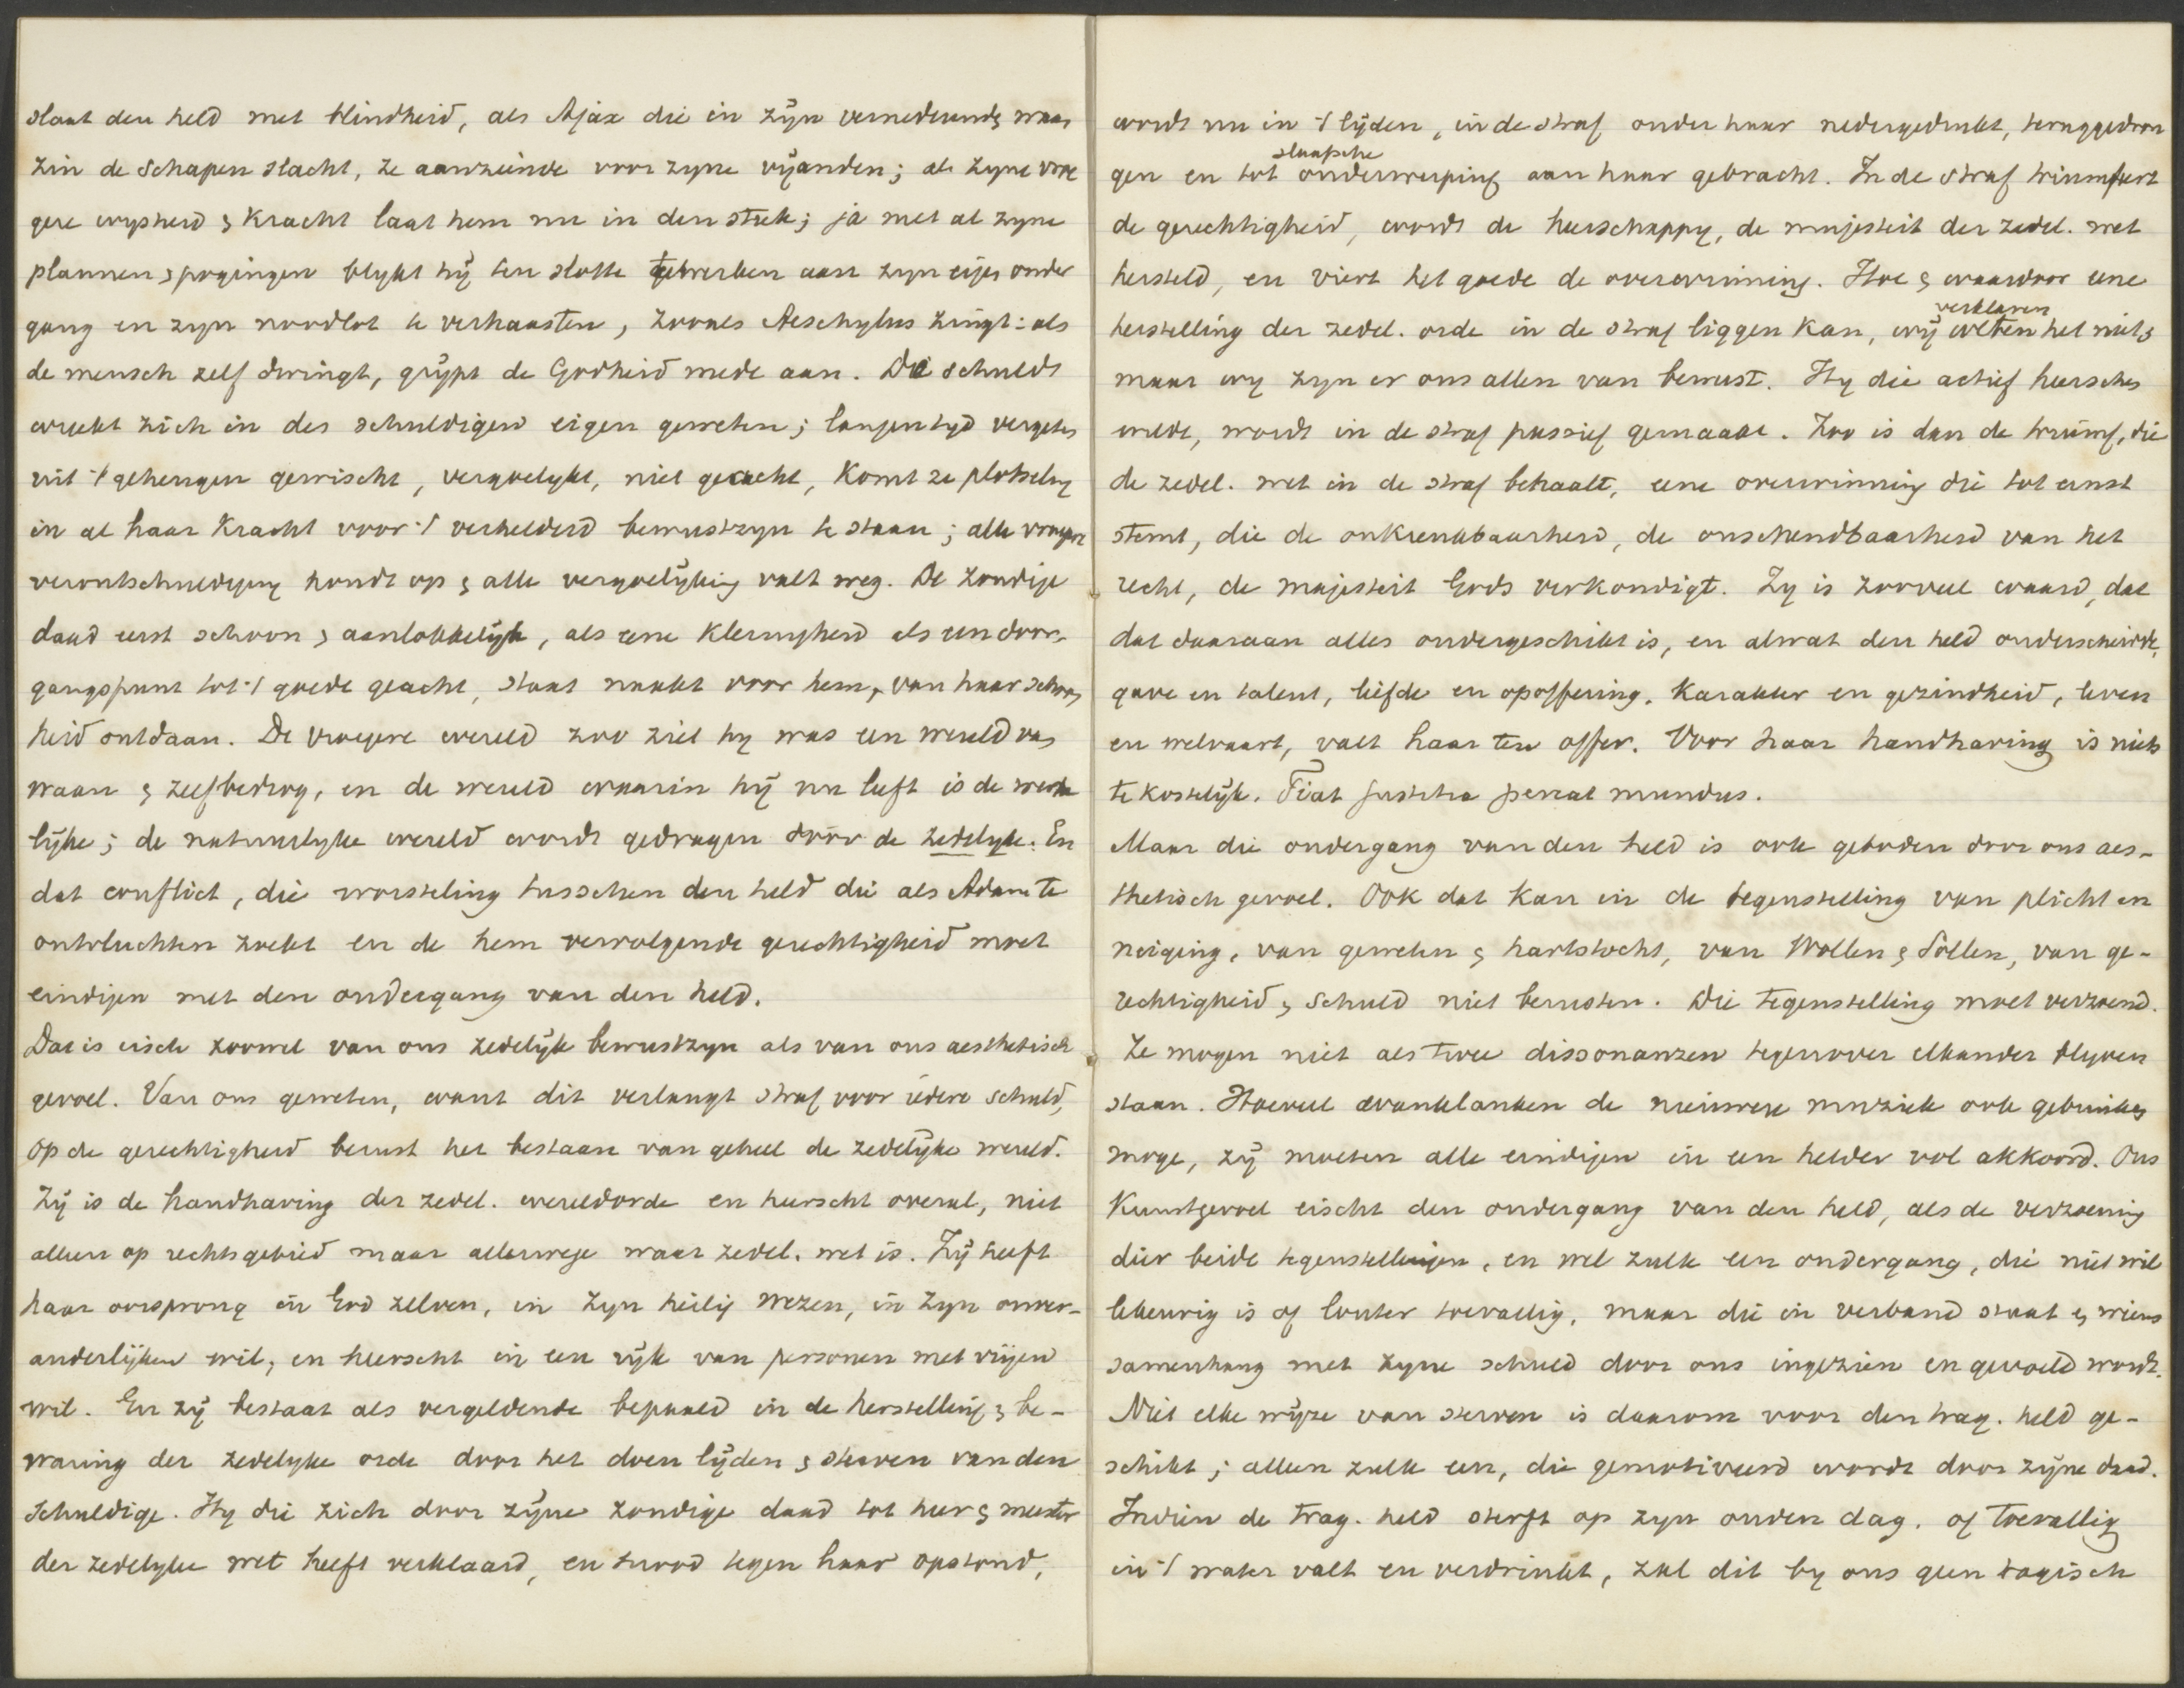 slaat den held met blindheid, als Ajax die in zijn vernederende waan
zin de schapen slacht, ze aanziende voor zyne vijanden; al zyne vroe
gere wysheid & kracht laat hem nu in den steek; ja met al zyne
plannen & pogingen blykt hij ten slotte gewerkt aan zyn eigen onder
gang en zyn noodlot te verhaasten, zooals Aeschylus zingt: als
de mensch zelf dringt, grijpt de Godheid mede aan. De schuld
wreekt zich in des schuldigen eigen geweten; langen tijd vergeten
uit 't geheugen gewischt, vergoelykt, niet geacht, komt ze plotseling
in al haar kracht voor 't verhelderd bewustzyn te staan; alle vroegere
verontschuldiging houdt op & alle vergoelijking valt weg. De zondige
daad eerst schoon & aanlokkelijk, als eene kleinigheid als een door-
gangspunt tot 't goede geacht, staat naakt voor hem, van haar schoon
heid ontdaan. De vroegere wereld zoo ziet hy was een wereld van
waan & zelfbedrog, en de wereld waarin hij nu leeft is de werke
lijke; de natuurlyke wereld wordt gedragen door de zedelyke. En
dat conflict, die worsteling tusschen den held die als Adam te
ontvluchten zoekt en de hem vervolgende gerechtigheid moet
eindigen met den ondergang van den held.
Dat is eisch zoowel van ons zedelijk bewustzyn als van ons aesthetisch
gevoel. Van ons geweten, want dit verlangt straf voor iedere schuld,
op de gerechtigheid berust het bestaan van geheel de zedelijke wereld.
Zij is de handhaving der zedel. wereldorde en heerscht overal, niet
alleen op rechtsgebied maar allerwege waar zedel. wet is. Zij heeft
haar oorsprong in God zelven, in Zyn heilig wezen, in Zyn onver-
anderlijken wil, en heerscht in een rijk van personen met vrijen
wil. En zij bestaat als vergeldende bepaald in de herstelling & be-
waring der zedelyke orde door het doen lijden & sterven van den
schuldige. Hy die zich door zijne zondige daad tot heer & meester
der zedelyke wet heeft verklaard, en snood tegen haar opstond,
wordt nu in 't lijden, in de straf onder haar nedergedrukt, teruggedron
gen en tot slaafsche onderwerping aan haar gebracht. In de straf triumfeert
de gerechtigheid, wordt de heerschappy, de majesteit der zedel. wet
hersteld, en viert het goede de overwinning. Hoe & waardoor eene
herstelling der zedel. orde in de straf liggen kan, wij weten verklaren het niet &
maar wy zyn er ons allen van bewust. Hy die actief heerschen
wilde, wordt in de straf passief gemaakt. Zoo is dan de triumf, die
de zedel. wet in de straf behaalt, eene overwinning die tot ernst
stemt, die de onkrenkbaarheid, de onschendbaarheid van het
recht, de majesteit Gods verkondigt. Zy is zooveel waard, dat
dat daaraan alles ondergeschikt is, en alwat den held onderscheidde,
gave en talent, liefde en opoffering, karakter en gezindheid, leven
en welvaart, valt haar ten offer. Voor haar handhaving is niets
te kostelijk. Fiat justitia pereat mundus.
Maar die ondergang van den held is ook geboden door ons aes-
thetisch gevoel. Ook dat kan in de tegenstelling van plicht en
neiging, van geweten & hartstocht, van Wollen & Sollen, van ge-
rechtigheid & schuld niet berusten. Die tegenstelling moet verzoend.
Ze mogen niet als twee dissonanzen tegenover elkander blyven
staan. Hoeveel wanklanken de nieuwere muziek ook gebruiken
moge, zij moeten alle eindigen in een helder vol akkoord. Ons
kunstgevoel eischt den ondergang van den held, als de verzoening
dier beide tegenstellingen, en wel zulk een ondergang, die niet wil
lekeurig is of louter toevallig, maar die in verband staat & wiens
samenhang met zyne schuld door ons ingezien en gevoeld wordt.
Niet elke wijze van sterven is daarom voor den trag. held ge-
schikt; alleen zulk een, die gemotiveerd wordt door zijne daad.
Indien de trag. held sterft op zyn ouden dag, of toevallig
in 't water valt en verdrinkt, zal dit by ons geen tragisch